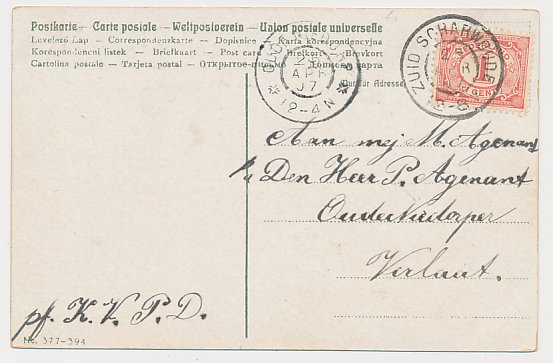 Postkarte — Carte postale — Weltpostverein — Union postale universelle
Levelező Lap — Correspondenzkarte — Dopisnice — Karta korespondencyjna
Korespondenční lístek — Briefkaart — Post card — Brefkort — Brevkort
Cartolina postale — Tarjeta postal — ОТКРЫТОЕ ПИСЬМО — Дописна карта
(Nur für Adresse)
2
APR
07
12-4N
ZUID SCHARWOUDE
CENT
Aan mej M. Agenant
p/a Den Heer P. Agenant
Oudenkierdorper
Verlaat.
pf. K. V. P. D.
No. 377-394